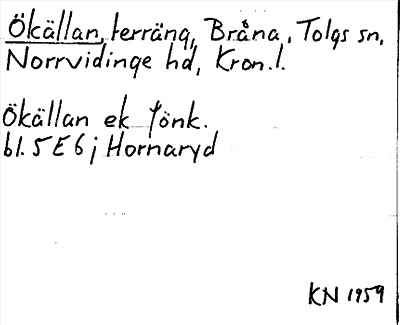 Ökällan, terräng, Bråna, Tolgs sn,
Norrvidinge hd, Kron.l.
Ökällan ek fönk.
bl. 5E6j Hornaryd
KN 1959